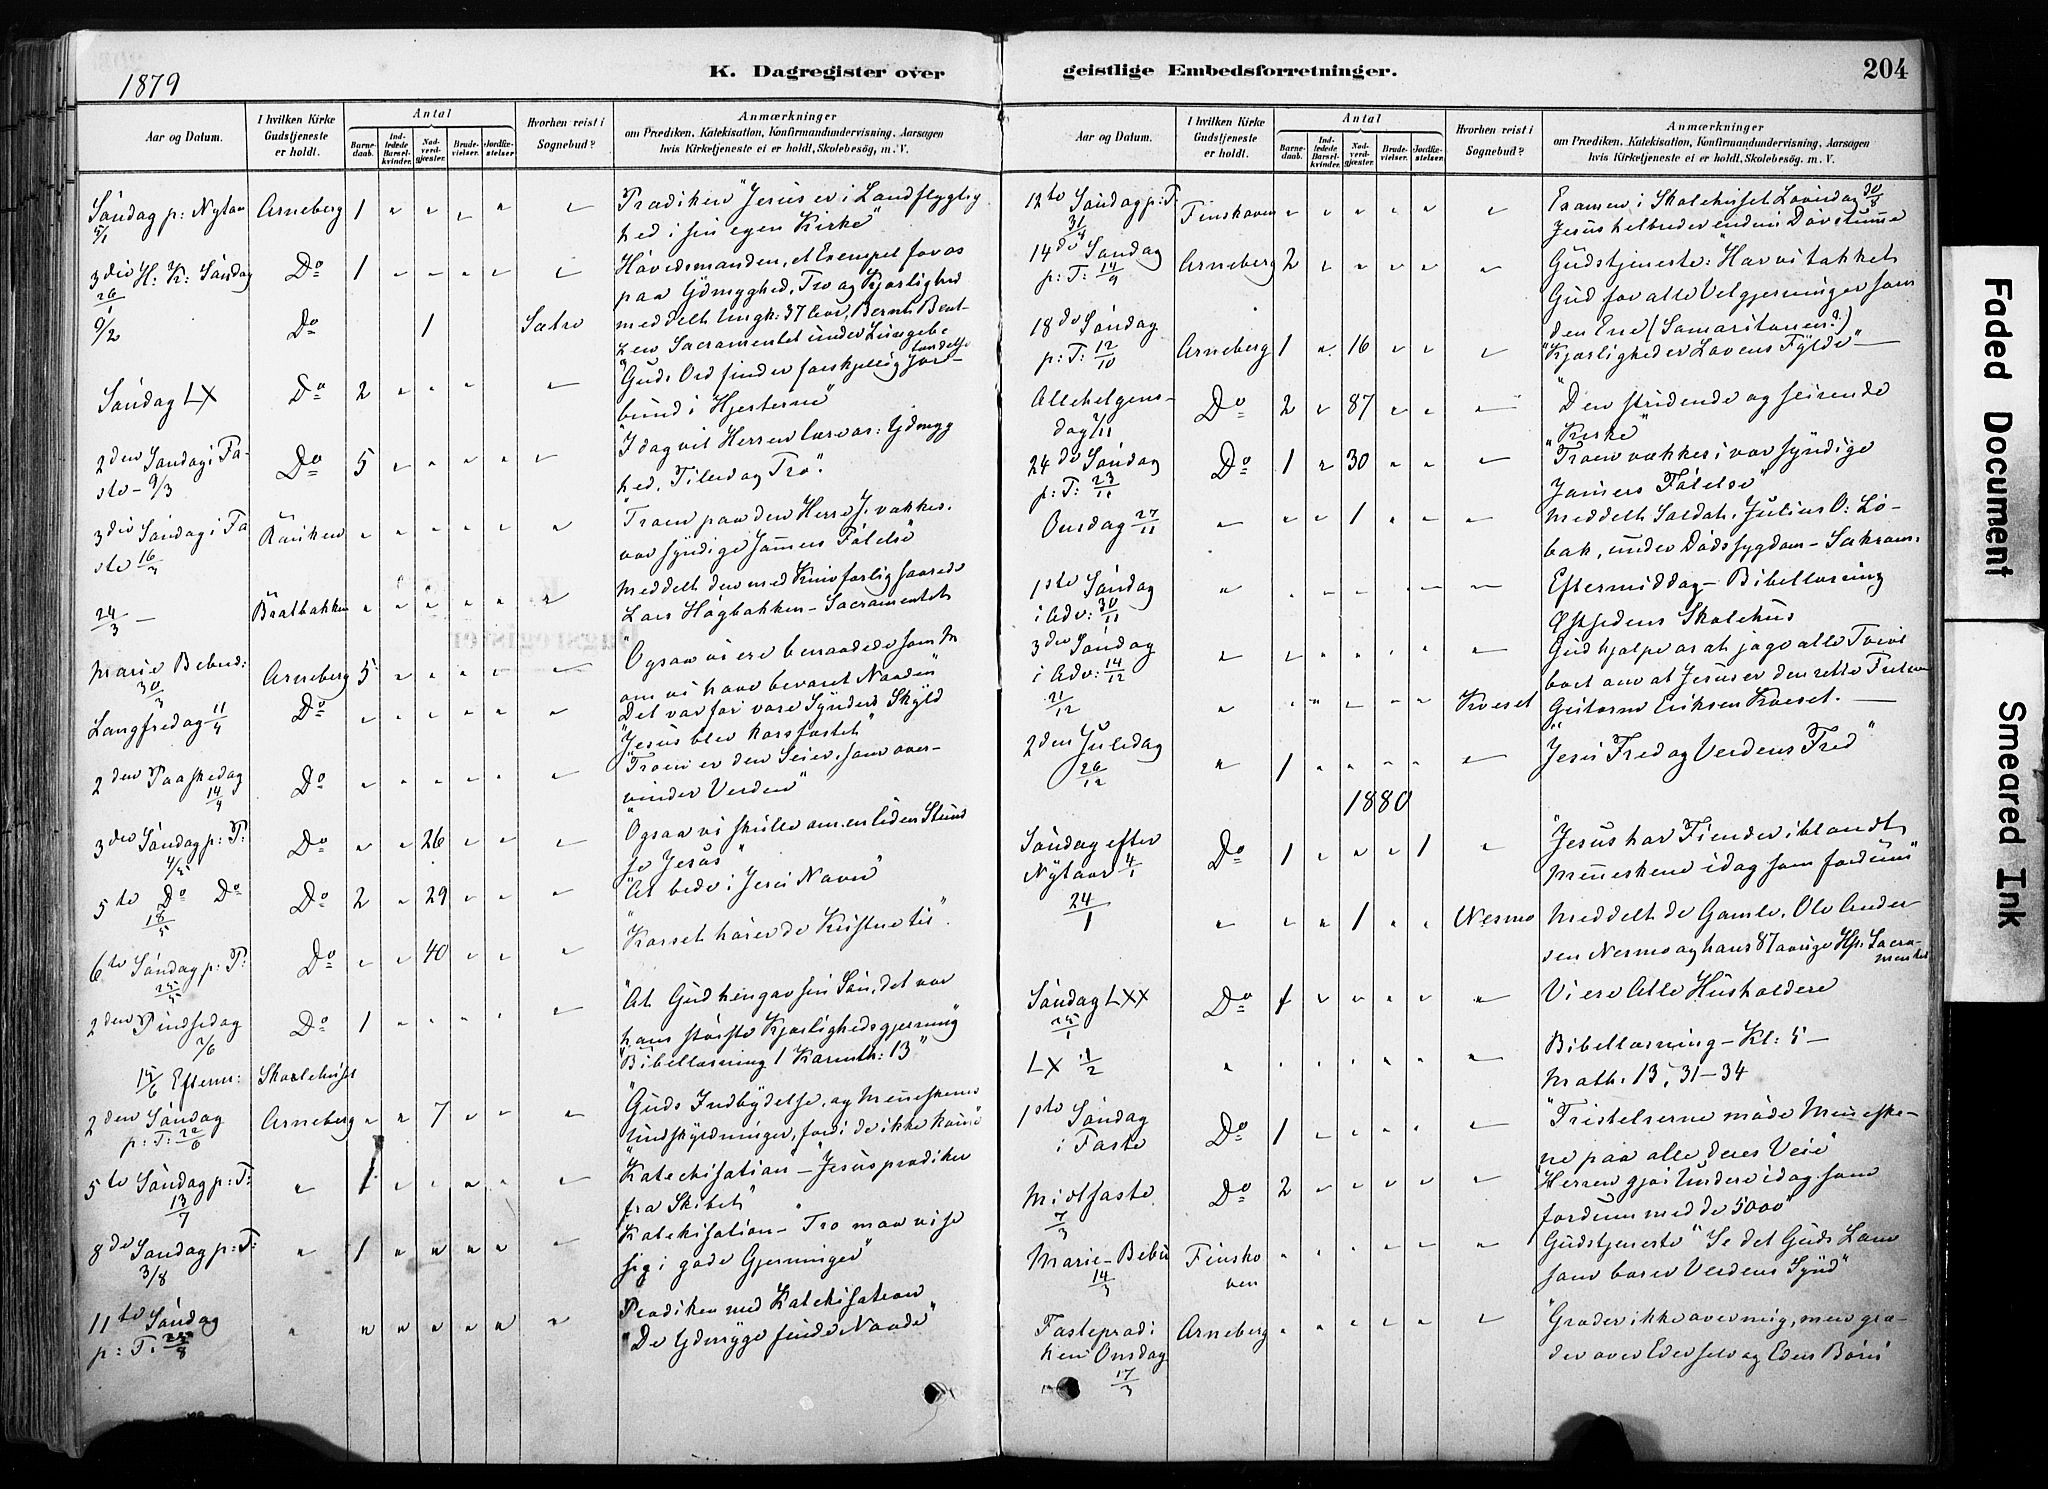 1879
K. Dagregister over
Aar og Datum.
I hvilken Kirke Gudstjeneste er holdt.
Antal
Barnedaab.
Indledede Barselkvinder.
Nadverdgjæster.
Brudevielser.
Jordfæstelser.
Hvorhen reist i Sognebud?
Anmærkninger
om Prædiken, Katekisation, Konfirmandundervisning, Aarsagen
hvis Kirketjeneste ei er holdt, Skolebesøg, m. V.
Søndag p: Nytaar Arneberg 1 " " " " " Prædiken "Jesus er i Landflygtig
5/1 hed i sin egen Kirke"
3die H. K: Søndag Do 1 " " " " " Høvedsmanden, et Exempel for os
26/1 paa Ydmyghed, Tro og Kjærlighed
9/2 Do 1 Sætre meddelt Ungk: 37 Aar, Bernt Bent-
sen Sacramentet under Lungebe
tændelse
Søndag LX Do 2 " " " " " "Guds Ord finder forskjellig Jord-
bund i Hjerterne"
2den Søndag i Fa- Do 5 " " " " " "I dag vil Herren lære os: Ydmyg
ste - 9/3 hed, Tillid og Tro".
3die Søndag i Fa Røniken " " " " " " "Troen paa den Herre J. vækkes.
ste 16/3 vor syndige Jammers Følelse"
24/3 — Bratbakken " " " " " " Meddelt den med Kniv farlig saarede
Lars Høgbakken - Sacramentet
Marie Bebud: Arneberg 5 " " " " " "Ogsaa vi ere benaadede som M
30/3 om vi have bevaret Naaden"
Langfredag 11/4 Do " " " " " " "Det var for vore Synders Skyld
Jesus blev korsfæstet"
2den Paaskedag Do " " " " " " "Troen er den Seier, som over-
14/4 vinder Verden"
3die Søndag p: P: Do " " 26 " " " "Ogsaa vi skulle om en liden Stund
4/5 se Jesus"
5te Do Do Do 2 " 29 " " " "At bede i Jesu Navn"
18/5
6te Søndag p: P: Do " " 40 " " " "Korset hører de Kristne til".
25/5
2den Pindsedag Do 1 " " " " " "At Gud hengav sin Søn, det var
2/6 hans største Kjærlighedsgjerning"
15/6 Efterm: Skolehuset "Bibellæsning 1 Korinth: 13"
2den Søndag Arneberg " " 7 " " " "Guds Indbydelse, og Menneskenes
p: T: 22/6 Undskyldninger, fordi de ikke komme"
5te Søndag p: T: " 1 " " " " " "Katechisation - "Jesus prædiker
13/7 fra Skibet"
8de Søndag p: T: " 1 " " " " " Katekisation - "Tro maa vise
3/8 sig i gode Gjerninger"
11te Søndag " " " " " " " Prædiken med Katekisation
p: T. 24/8 "De Ydmyge finde Naade"
geistlige Embedsforretninger.
204
Aar og Datum.
I hvilken Kirke Gudstjeneste er holdt.
Antal
Barnedaab.
Indledede Barselkvinder.
Nadverdgjæster.
Brudevielser.
Jordfæstelser.
Hvorhen reist i Sognebud?
Anmærkninger
om Prædiken, Katekisation, Konfirmandundervisning, Aarsagen
hvis Kirketjeneste ei er holdt, Skolebesøg, m. V.
12te Søndag p: T. Finskoven " " " " " " Examen i Skolehuset Løverdag 30/8
31/8 Jesus helbreder endnu Døvstumme
14de Søndag Arneberg 2 " " " " " Gudstjeneste: "Har vi takket
p: T: 14/9 Gud for alle Velgjerninger som
den Ene (Samaritanen?)
18de Søndag Arneberg 1 " 16 " " " "Kjærlighed er Lovens Fylde" —
p: T: 12/10
Allehelgens- Do 2 " 87 " " " "Den stridende og seirende
dag 2/11 Kirke"
24de Søndag Do 1 " 30 " " " "Troen vækkes i vor syndige
p: T: 23/11 Jamers Følelse"
Onsdag 27/11 " " " 1 " " " Meddelt Soldat. Julius O: Lø-
bak, under Dødssygdom - Sakram:
1ste Søndag " " " " " " " Eftermiddag - Bibellæsning
i Adv: 30/11 Østsidens Skolehus
3die Søndag " " " " " " " Gud hjælpe os at jage alle Tvivl
i Adv: 14/12 bort om at Jesus er den rette Frelser
21/12 " " " " " " Kveset Gutorm Eriksen Kveset. —
2den Juledag " 1 " " " " " "Jesu Fred og Verdens Fred"
26/12
1880
Søndag efter Do 1 " " " 1 " "Jesus har Fiender iblandt
Nytaar 4/1 Menneskene idag som fordum"
24/1 " " " 1 " " Nesmo Meddelt de Gamle, Ole Ander
sen Nesmo og hans 87 aarige Hr. Sacra-
mentet
Søndag LXX Do 1 " " " " " Vi ere Alle Husholdere
25/1
LX 1/2 " " " " " " " Bibellæsning - Kl: 5 —
Math: 13, 31-34
1ste Søndag Do 1 " " " " " "Fristelserne møde Menneske-
i Faste ne paa alle deres Veie"
Midfaste Do 2 " " " " " "Herren gjør Undere idag som
7/3 fordum med de 5000"
Marie-Bebu Finsko " " " " " " Gudstjeneste "Se det Guds Lam
14/3 ven som bærer Verdens Synd"
Fasteprædi Arneberg " " " " " " "Græder ikke over mig, men græ-
ken Onsdag der over Eder selv og Eders Børn"
17/3
Faded Document
Smeared Ink